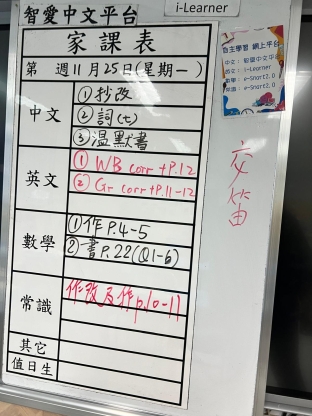 智愛中文平台
i-Learner
家課表
第 週 11月25日(星期一)
中文
①抄改
②詞(七)
③溫默書
英文
① WB corr + P.12
② Gr corr + P.11-12
數學
①作 P.4-5
②書P.22(Q1-6)
常識
作改及作p.10-11
其它
值日生
自主學習 網上平台
中文:智愛中文平台
英文:i-Learner
數學:e-Smart2.0
常識:e-Smart2.0
交笛